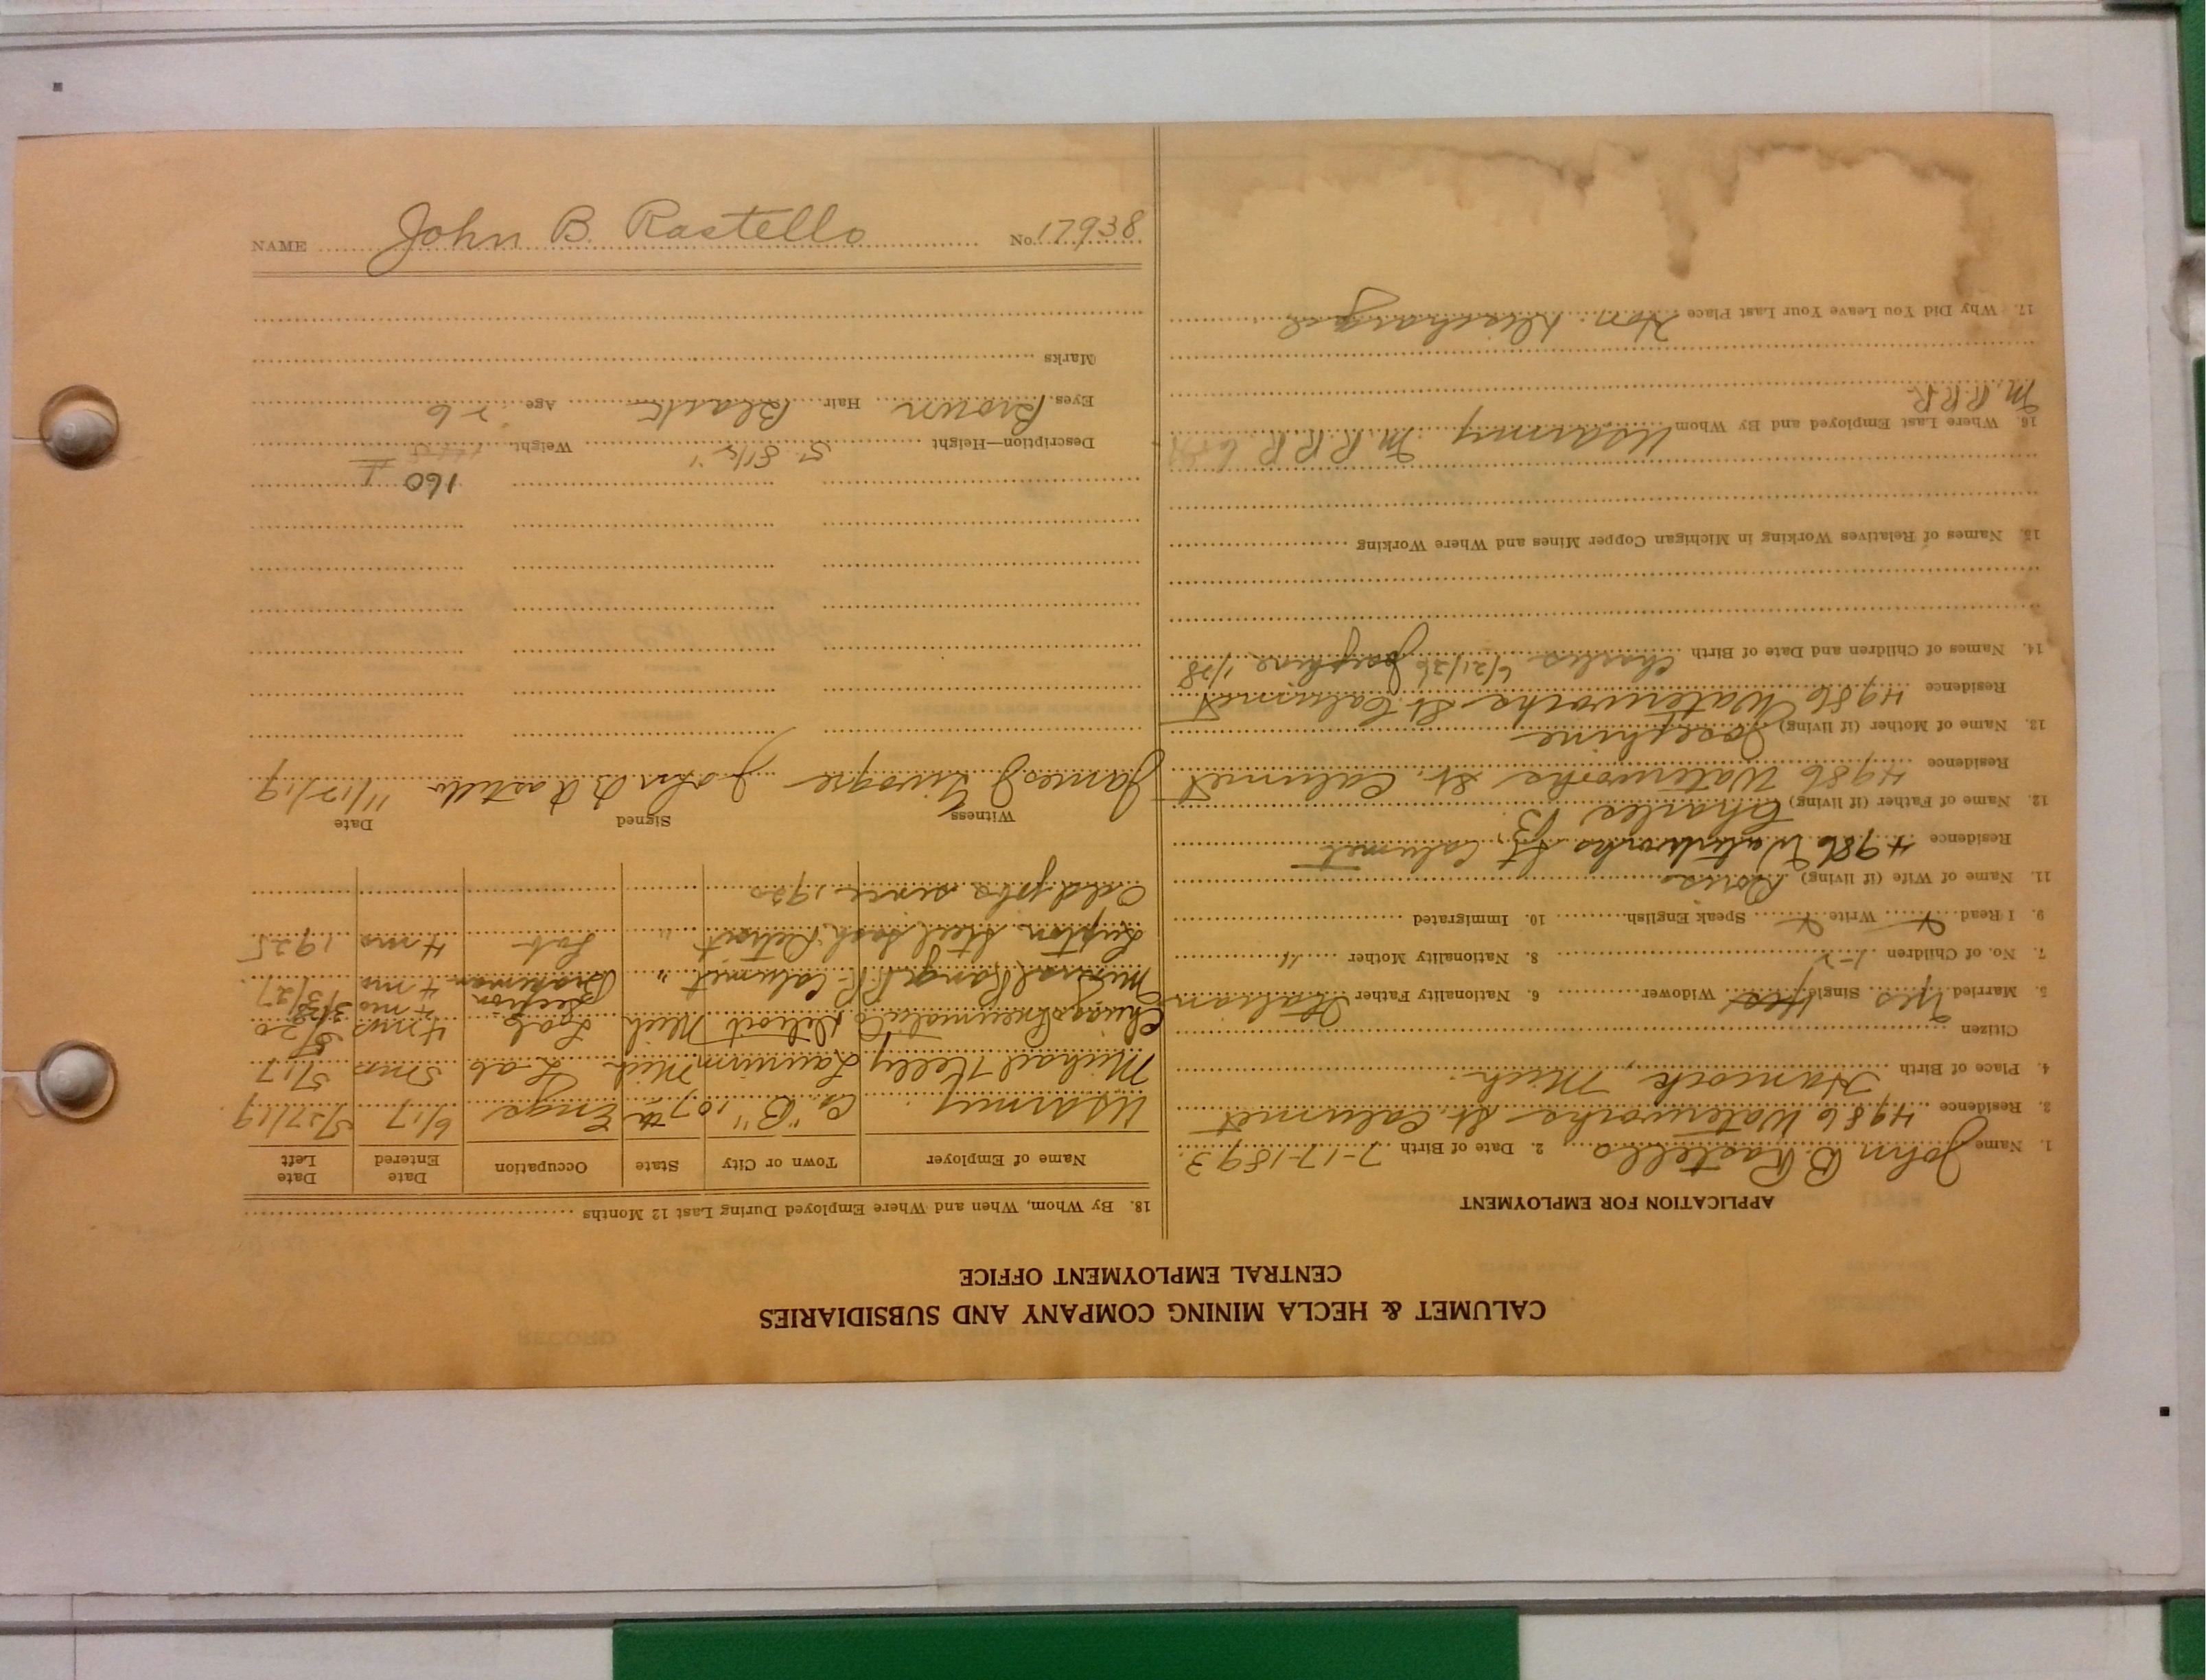 CALUMET & HECLA MINING COMPANY AND SUBSIDIARIES
CENTRAL EMPLOYMENT OFFICE
APPLICATION FOR EMPLOYMENT
1. Name John B. Rastello 2. Date of Birth 7-17-1893
3. Residence 4986 Waterworks St. Calumet
4. Place of Birth Hancock, Mich.
Citizen
5. Married Yes Single Yes Widower 6. Nationality Father Italian
7. No. of Children 1-2 8. Nationality Mother "
9. I Read Write Speak English 10. Immigrated
11. Name of Wife (if living) Doris
Residence 4986 Waterworks St, Calumet
12. Name of Father (if living) Charles B.
Residence 4986 Waterworks St. Calumet
13. Name of Mother (if living) Josephine
Residence 4986 Waterworks St. Calumet
14. Names of Children and Date of Birth Charles 6/21/26 Josephine 1/28
15. Names of Relatives Working in Michigan Copper Mines and Where Working
16. Where Last Employed and By Whom US Army M.R.R.R.
M.R.R.R.
17. Why Did You Leave Your Last Place Hon. Discharged
18. By Whom, When and Where Employed During Last 12 Months
Name of Employer Town or City State Occupation Date Entered Date Left
US Army Co. "B" 107th Engs 6/17 5/27/19
Michael Kelly Laurium Mich Lab 5 mos 5/17
Chicago Pneumatic Co Detroit Mich Lab 4 mos 5/20
Section 4 mos 3/28
Mineral Range R.R. Calumet " Brakeman 4 mos 3/27
Lupton Steel Sash Detroit " Lab 4 mos 1925
Odd jobs since 1920
Witness Signed Date
James J. John B Rastello 11/12/19
160 #
Description—Height 5' 8 1/2" Weight
Eyes Brown Hair Black Age 26
Marks
NAME John B. Rastello No. 17938